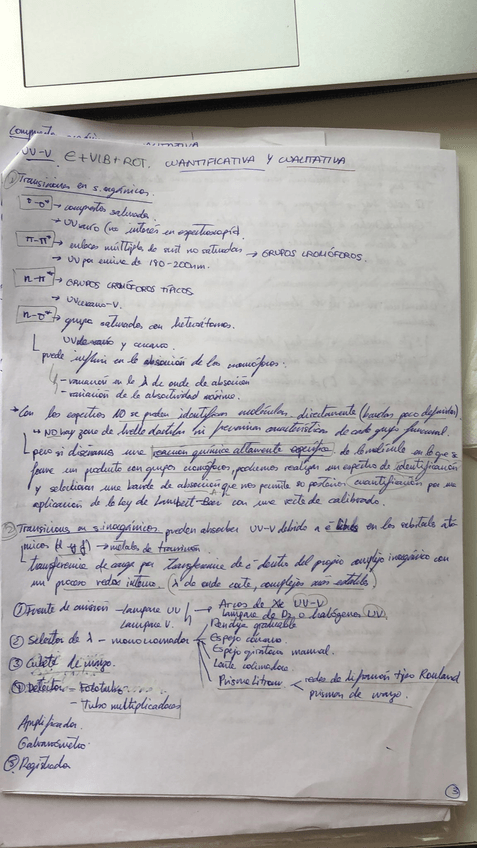 UV-V E+VIB+ROT. CUANTIFICATIVA Y CUALITATIVA
① Transiciones en s. orgánicos.
σ-σ* → compuestos saturados
→ UV vacío (no interés en espectroscopia)
π-π* → enlaces múltiples de sust no saturadas → GRUPOS CROMÓFOROS.
→ UV por encima de 190-200nm.
n-π* → GRUPOS CROMÓFOROS TÍPICOS
→ UV cercano-V.
n-σ* → grupos saturados con heteroátomos.
UV y cercano.
puede influir en la absorción de los cromóforos.
- variación en la λ de onda de absorción
- variación de la absortividad máxima.
→ Con los espectros NO se pueden identificar moléculas directamente (bandas poco definidas)
↳ NO hay zona de huella dactilar ni frecuencias características de cada grupo funcional.
pero si diseñamos una reacción química altamente específica de la molécula en la que se
forme un producto con grupos cromóforos, podemos realizar un espectro de identificación
y seleccionar una banda de absorción que nos permite su posterior cuantificación por
aplicación de la ley de Lambert-Beer con una recta de calibrado.
② Transiciones en s. inorgánicos pueden absorber UV-V debido a é en los orbitales ató
micos (d y f) → metales de transición
transferencia de carga por transferencia de é dentro del propio complejo inorgánico con
un proceso redox interno. (λ de onda corta, complejos más estables)
① Fuente de emisión - lámpara UV → Arcos de Xe UV-V
lámpara V. Lámpara de D₂ o halógenos UV
② Selector de λ - monocromador - Rendija graduable
Espejo cóncavo
Espejo giratorio manual.
Lente colimadora
Prisma Littrow < redes de difracción tipo Rowland
prismas de cuarzo.
③ Cubeta de cuarzo.
④ Detector - Fototubo
- Tubo multiplicadores
Amplificador
Galvanómetro.
⑤ Registrador
③